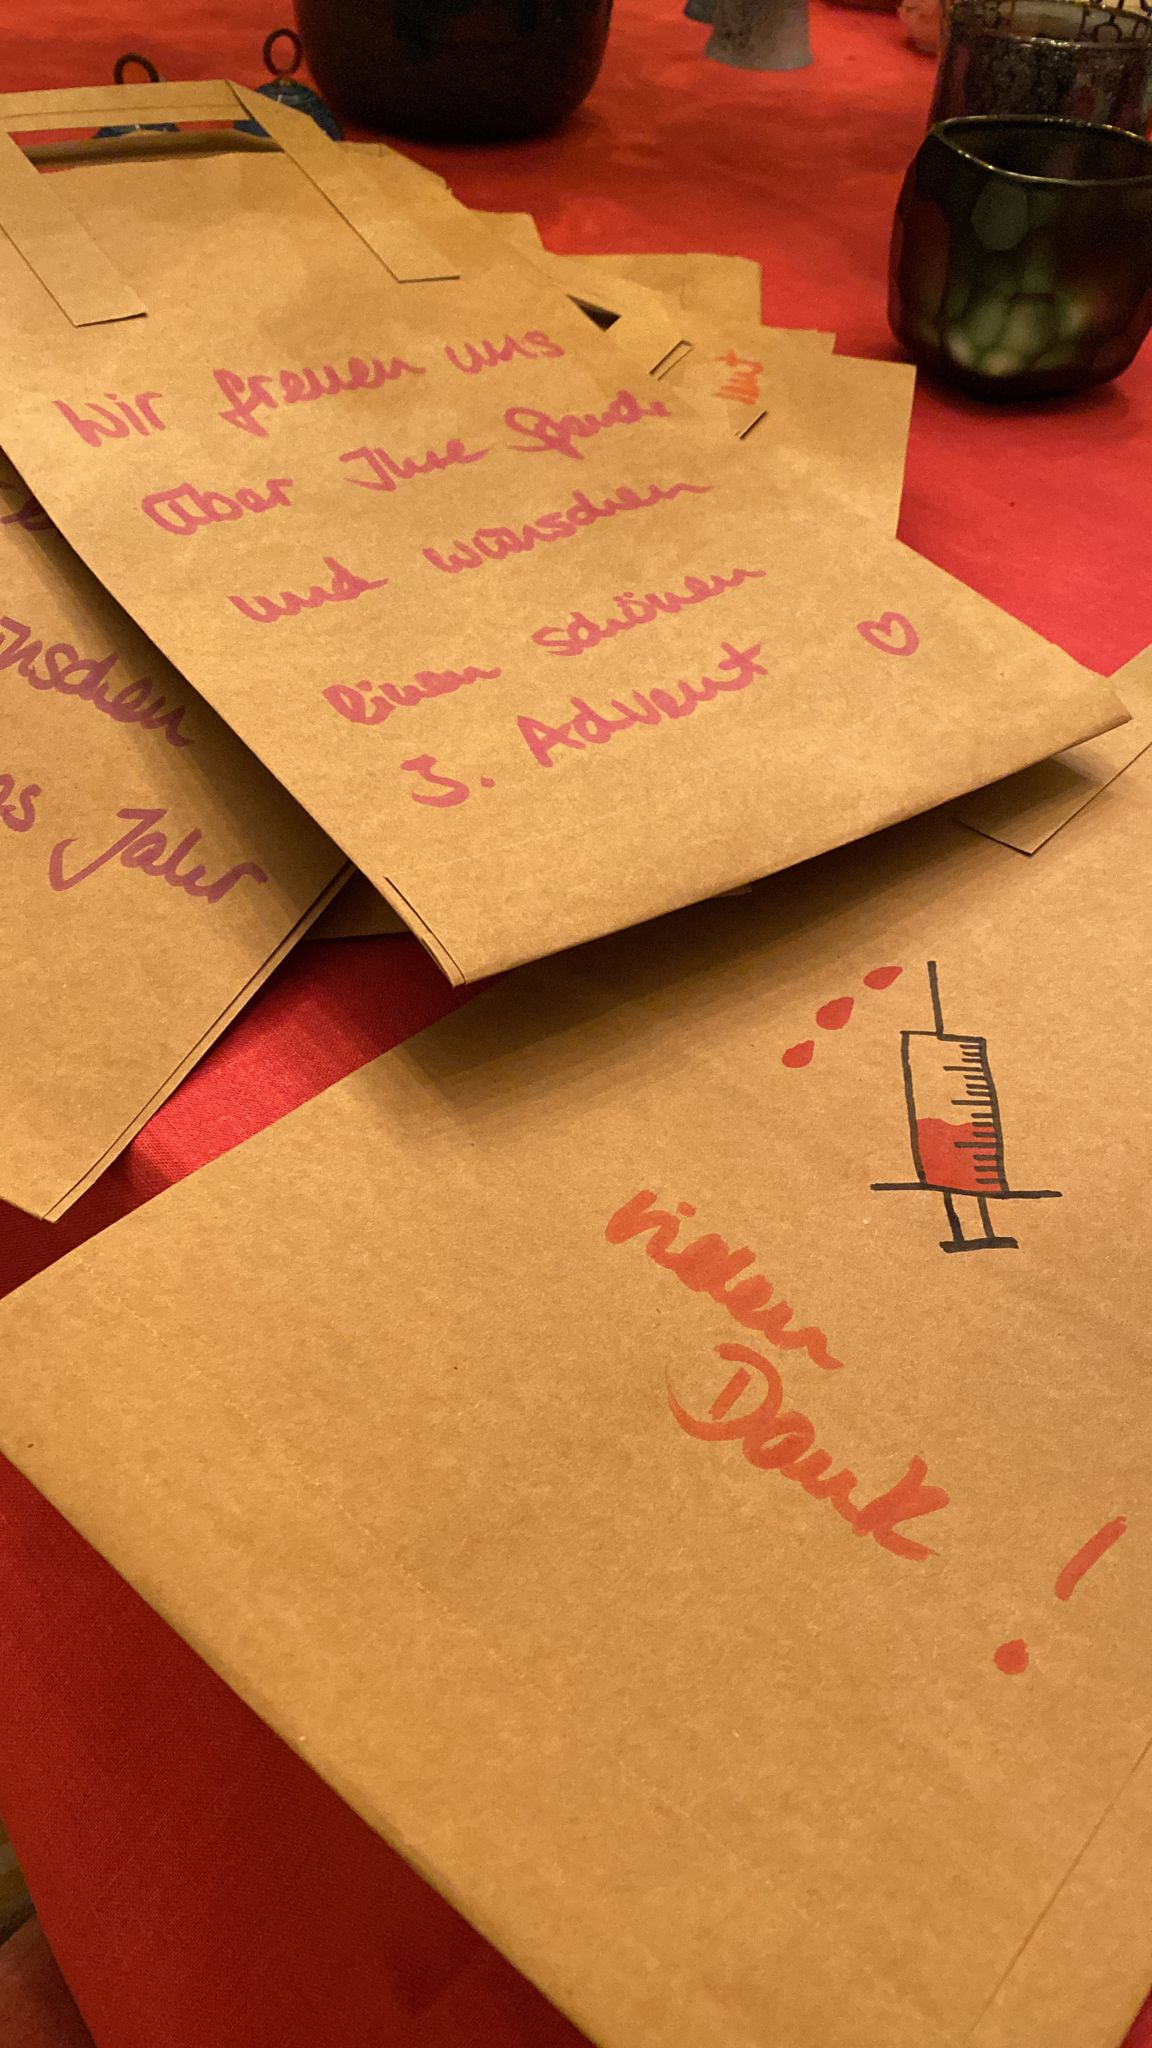 Wir freuen uns
über Ihre Spende
und wünschen
einen schönen
3. Advent
Jahr
Vielen
Dank
!